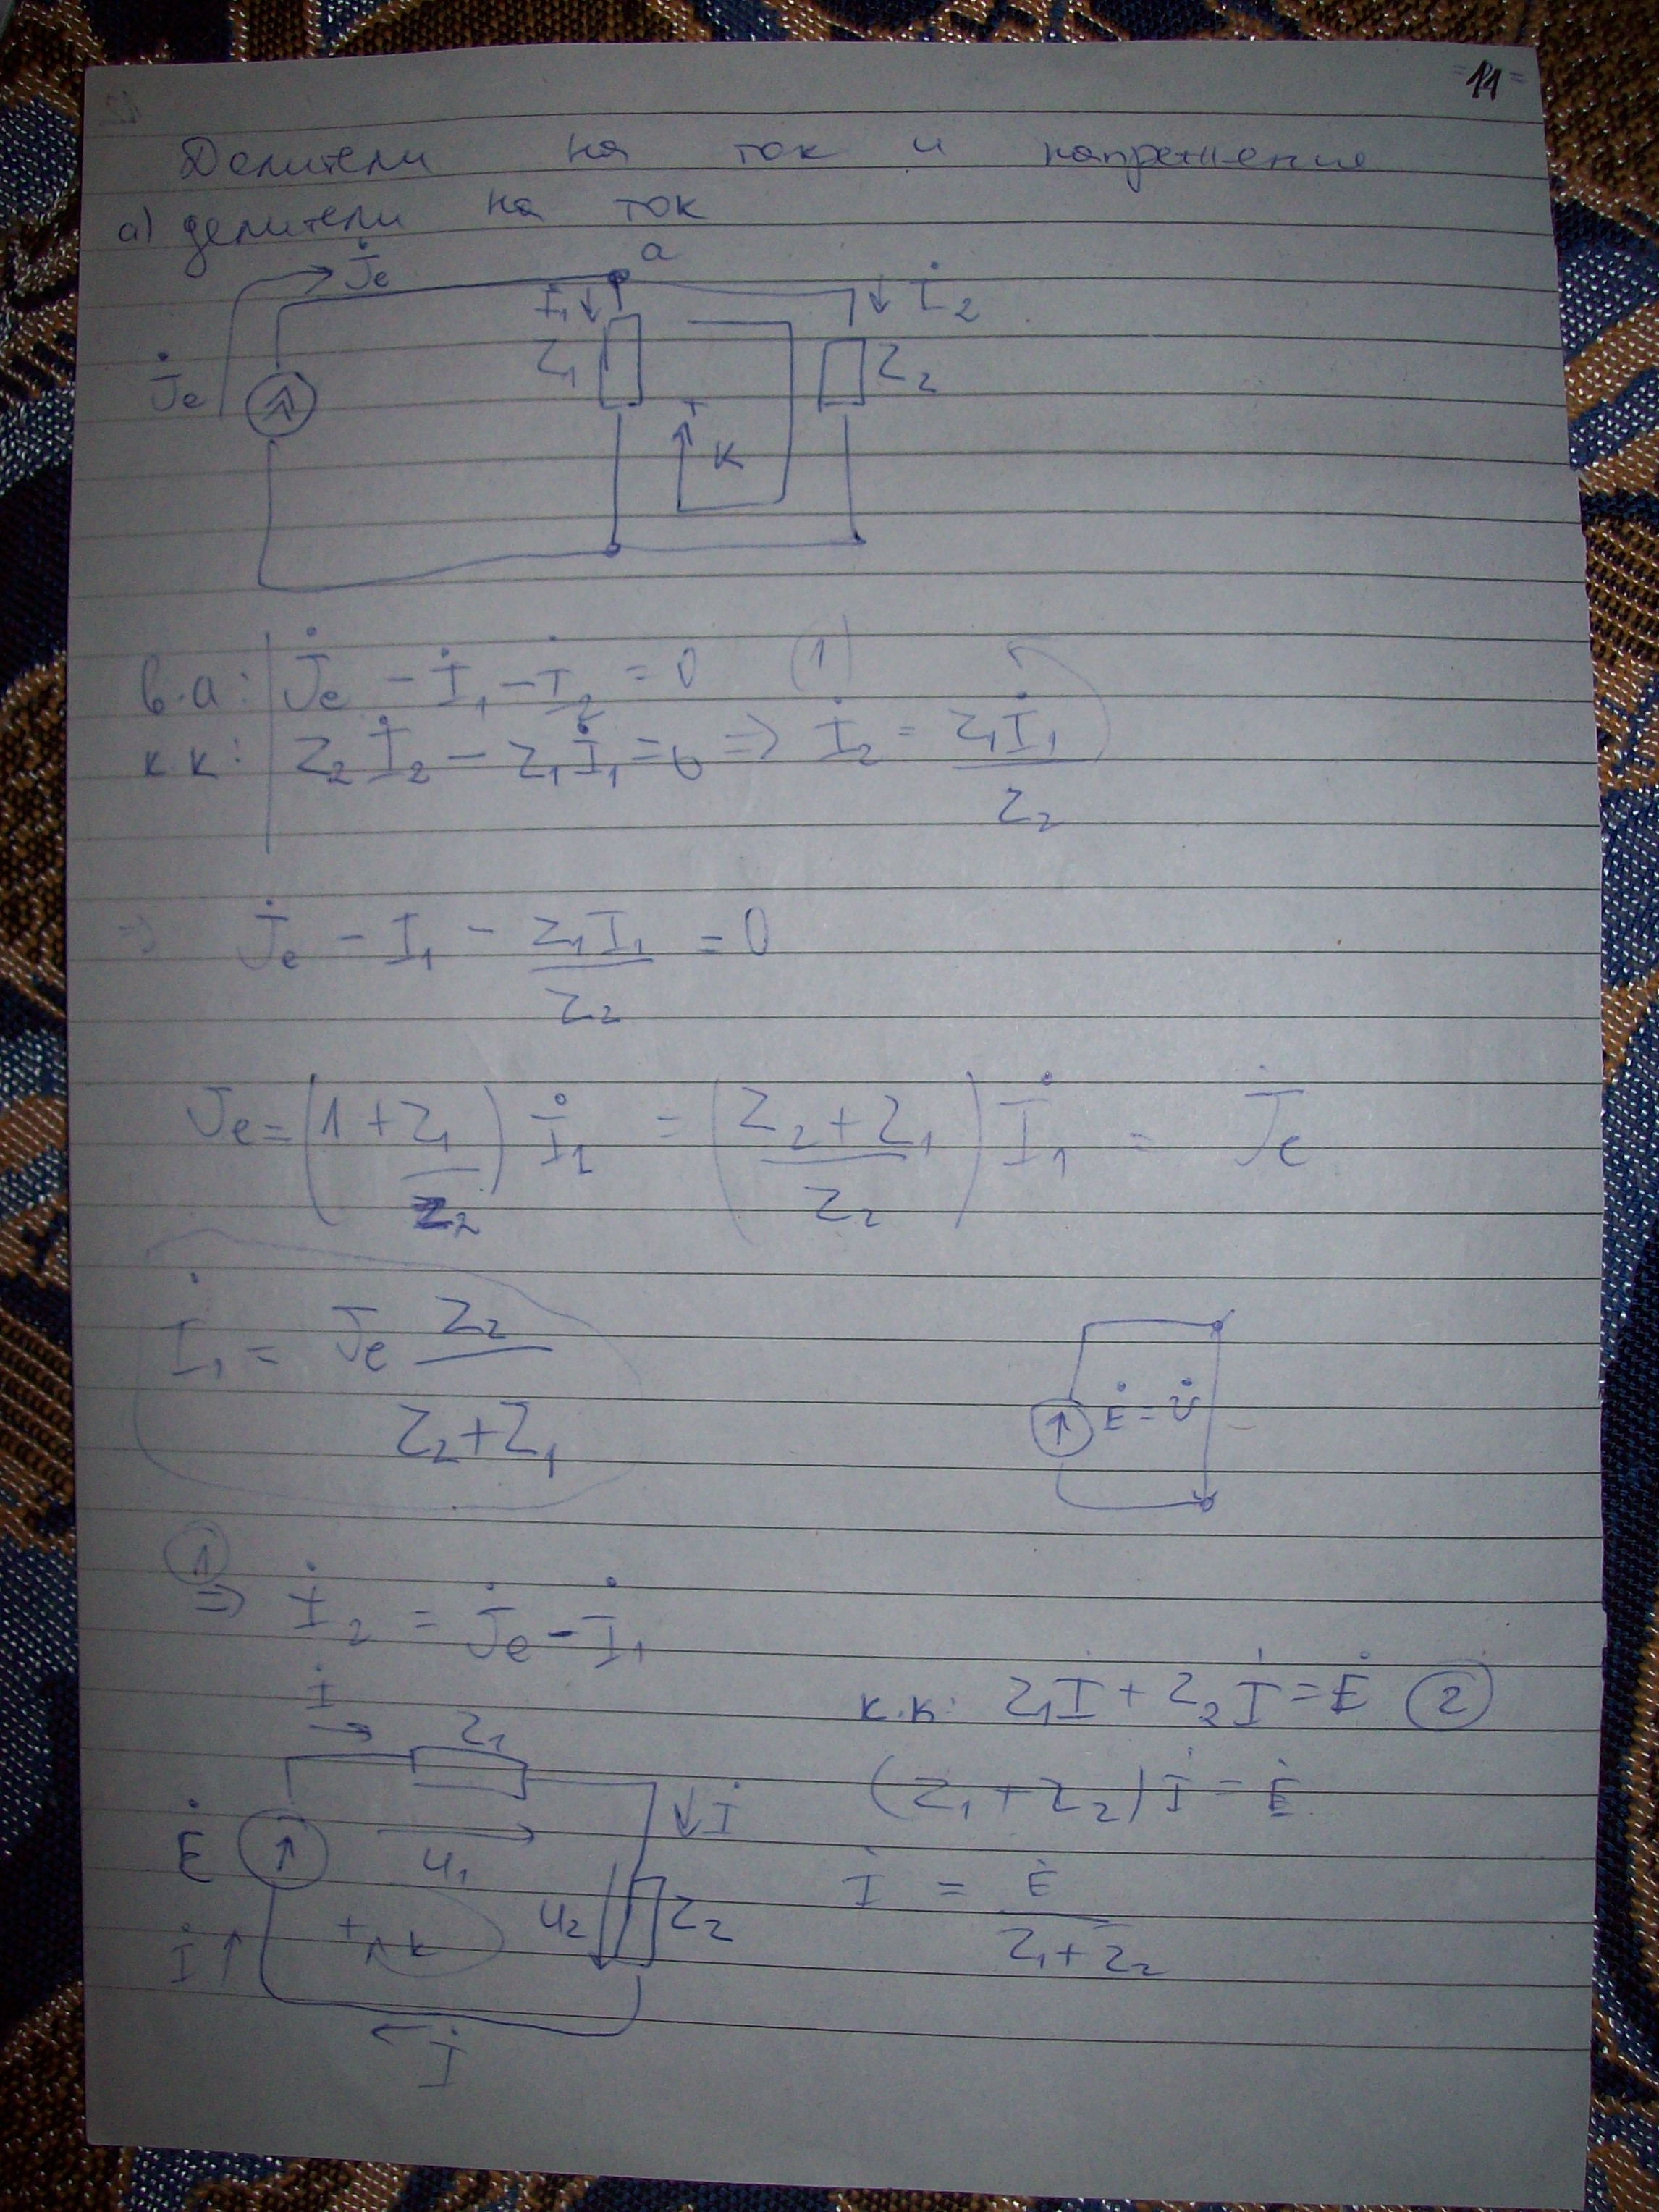 11
Делители на ток и напрежение
а) делители на ток
J̇e
a
İ1
İ2
J̇e
Z1
Z2
+
K
в.а: J̇e - İ1 - İ2 = 0 (1)
к.к: Z2 İ2 - Z1 İ1 = 0 => İ2 = Z1 İ1 / Z2
=> J̇e - I1 - Z1 I1 / Z2 = 0
Je = (1 + Z1 / Z2) İ1 = (Z2 + Z1 / Z2) İ1 = J̇e
İ1 = Je Z2 / Z2 + Z1
Ė = U̇
1
=> İ2 = J̇e - İ1
к.к: Z1 İ + Z2 İ = Ė 2
(Z1 + Z2) İ = Ė
İ = Ė / Z1 + Z2
İ
Z1
İ
Ė
U1
U2
Z2
+ K
İ
İ